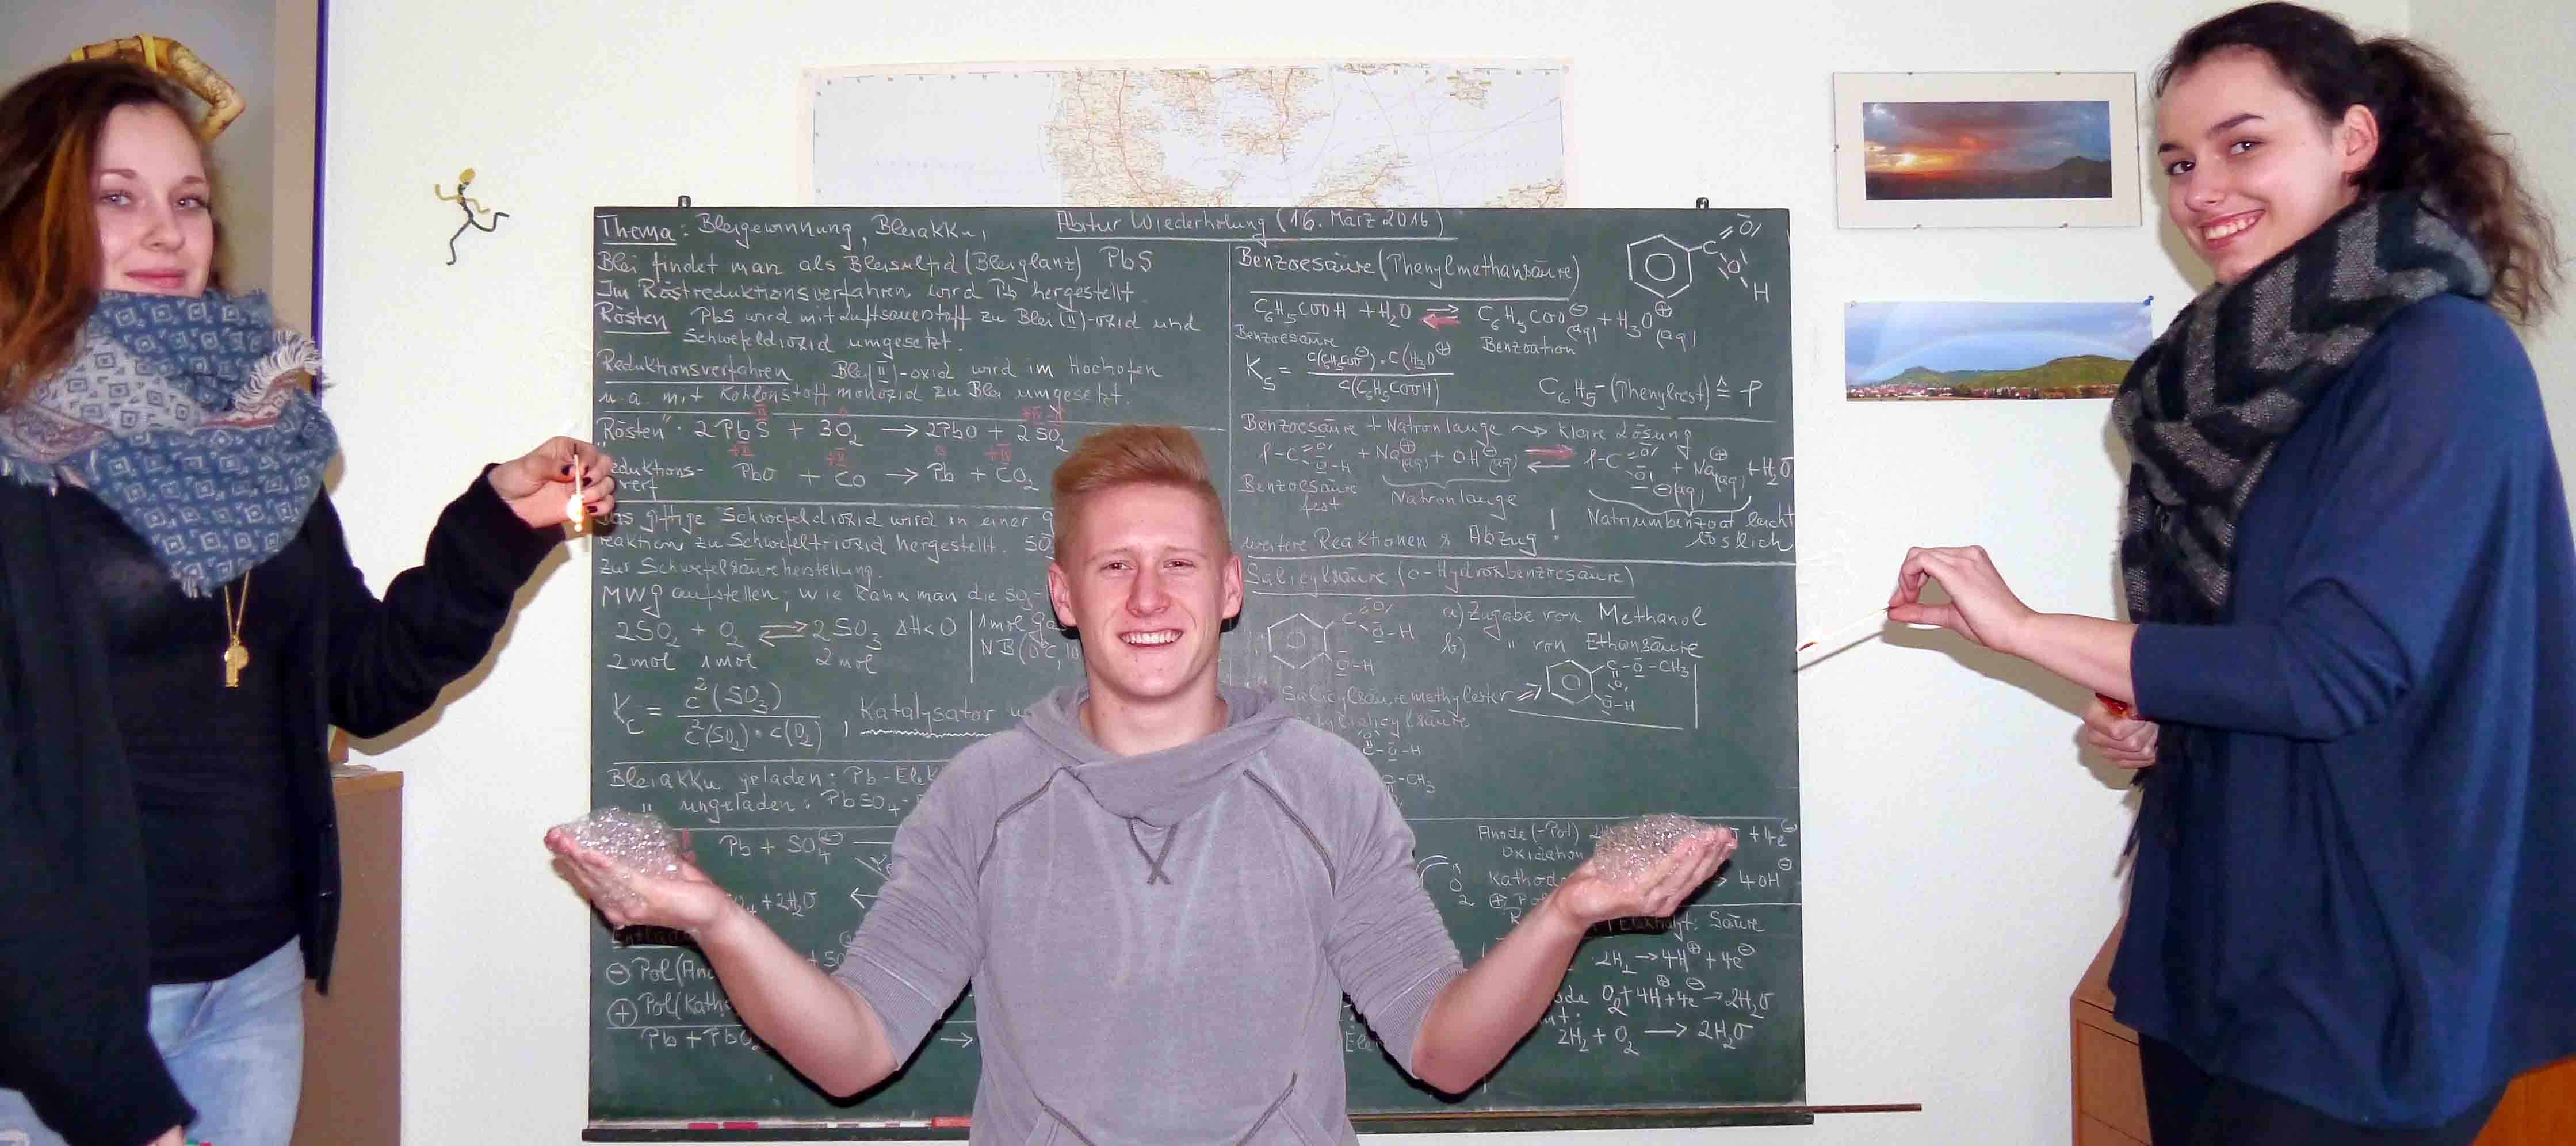 Thema: Bleigewinnung, Bleiakku,
Abitur Wiederholung (16. März 2016)
Blei findet man als Bleisulfid (Bleiglanz) PbS
Im Röstreduktionsverfahren wird Pb hergestellt.
Rösten PbS wird mit Luftsauerstoff zu Blei(II)-oxid und
Schwefeldioxid umgesetzt.
Reduktionsverfahren Blei(II)-oxid wird im Hochofen
u.a. mit Kohlenstoffmonoxid zu Blei umgesetzt.
"Rösten": 2PbS + 3O₂ → 2PbO + 2SO₂
eduktions- PbO + CO → Pb + CO₂
verf
Das giftige Schwefeldioxid wird in einer
reaktion zu Schwefeltrioxid hergestellt. SO
zur Schwefelsäureherstellung.
MWG aufstellen, wie kann man die SO₃-
2SO₂ + O₂ ⇌ 2SO₃ ΔH<O
2mol 1mol 2mol
1mol Ga
NB(0°C, 10
K_c = c²(SO₃) / c²(SO₂) · c(O₂), Katalysator
Bleiakku geladen: Pb-Elek
" ungeladen: PbSO₄-
Pb + SO₄
+ 2H₂O ←
Entlade
⊖ Pol(Ano
⊕ Pol(Katho
Pb + PbO₂ →
Benzoesäure (Phenylmethansäure)
C O O H
C₆H₅COOH + H₂O ⇌ C₆H₅COO⊖(aq) + H₃O⊕(aq)
Benzoesäure Benzoation
K_S = c(C₆H₅COO⊖) · c(H₃O⊕) / c(C₆H₅COOH)
C₆H₅-(Phenylrest) ≙ φ
Benzoesäure + Natronlauge ⇝ klare Lösung
φ-C O O-H + Na⊕(aq) + OH⊖(aq) ⇌ φ-C O O⊖(aq) + Na⊕(aq) + H₂O
Benzoesäure Natronlauge
fest
Natriumbenzoat leicht
löslich
weitere Reaktionen s Abzug!
Salicylsäure (o-Hydroxibenzoesäure)
C O O-H
O-H
a) Zugabe von Methanol
b) " von Ethansäure
Salicylsäuremethylester ⇒ C-O-CH₃
O
O-H
C-O-H
-CH₃
Anode (-Pol) 2H + 4e⊖
Oxidation
Kathod → 4OH⊖
O₂ ⊕ Pol
Säure
2H₂ → 4H⊕ + 4e⊖
ode O₂ + 4H⊕ + 4e⊖ → 2H₂O
mt:
2H₂ + O₂ → 2H₂O